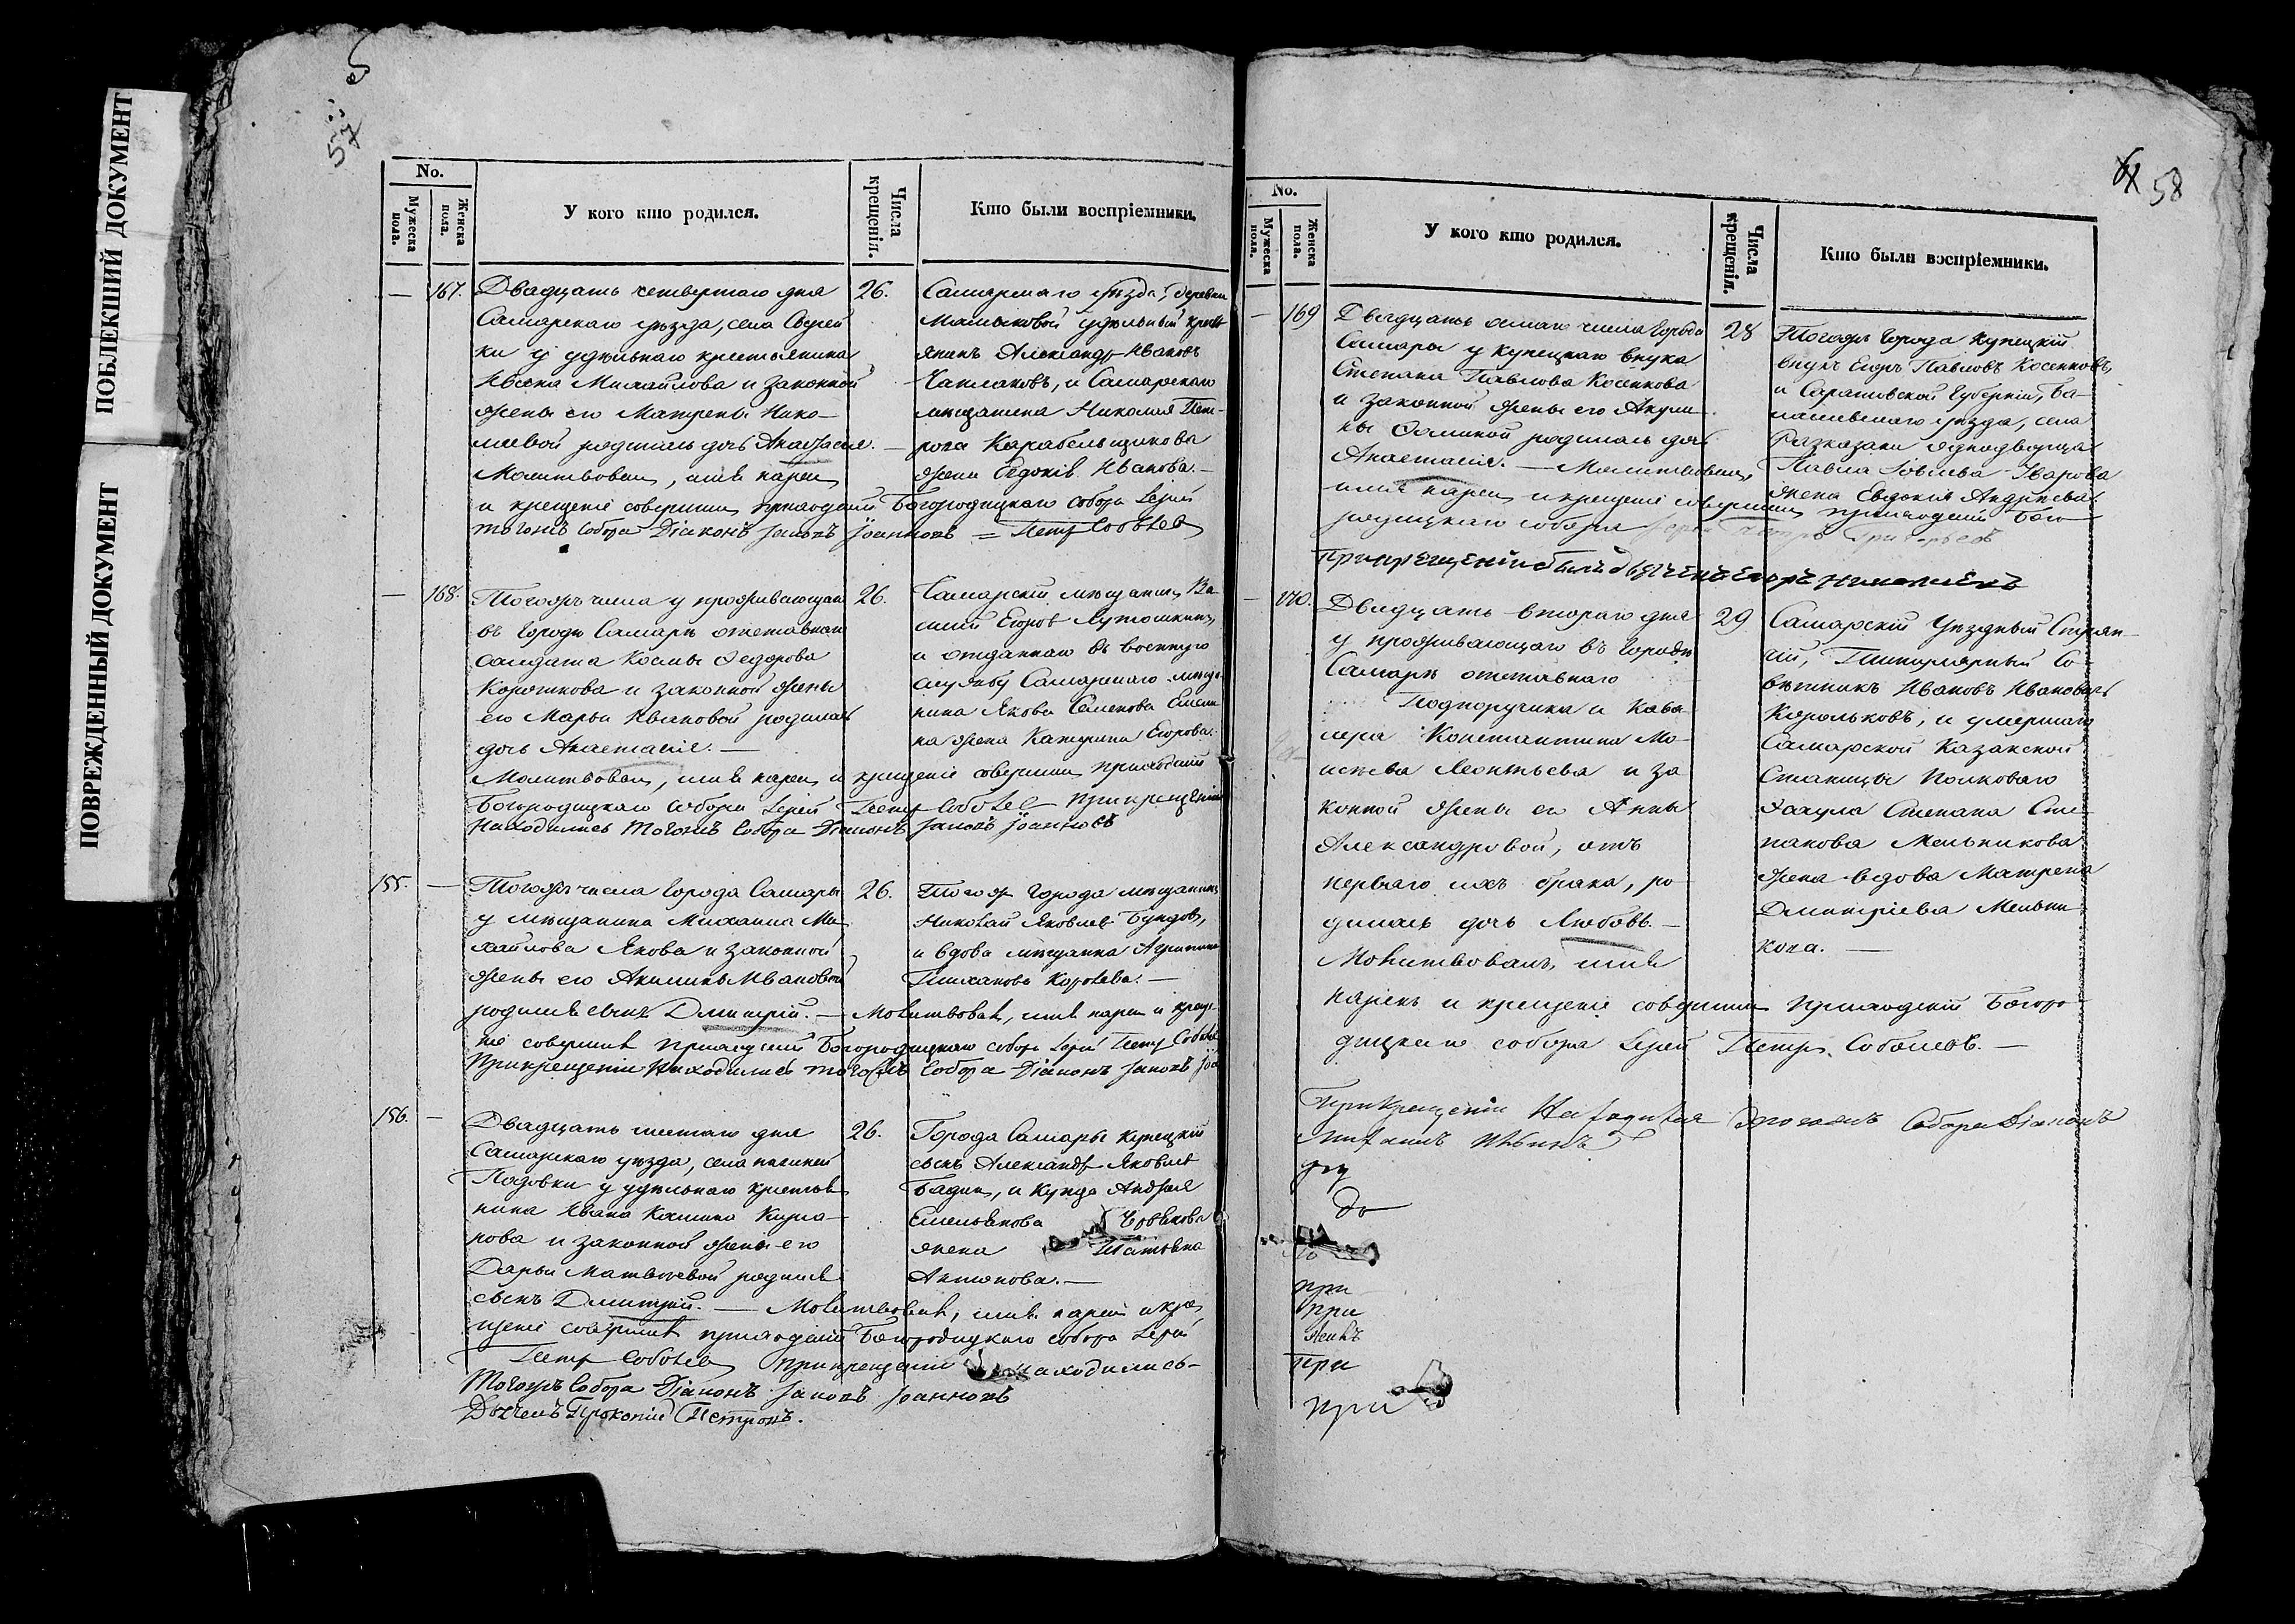 ПОБЛЕКШИЙ ДОКУМЕНТ
ПОВРЕЖДЕННЫЙ ДОКУМЕНТ
57
No.
Мужеска пола.
Женска пола.
У кого кто родился.
Числа крещенія.
Кто были воспріемники.
— 167.
Двадцать четвертаго дня
Самарскаго уѣзда, села
ки у удѣльнаго крестьянина
Михайлова и законной
жены его Матрены Нико-
лаевой родилась дочь Анастасія. —
Молитвовалъ, имя нарекъ
и крещеніе совершилъ приходскій Богородицкаго собора Іерей
тогожъ Собора Діаконъ Іаковъ Іоанновъ = Петръ Соболев
26.
Самарскаго уѣзда, деревни
удѣльный крест
янинъ Александръ Ивановъ
Чаплаковъ, и Самарскаго
мещанина Николая Пет-
рова Карабельщикова
жена Евдокія Иванова. —
— 168.
Тогожъ числа у проживающаго
въ городѣ Самарѣ отставнаго
солдата Космы Федорова
Короткова и законной жены
его Марьи Ивановой родилась
дочь Анастасія. —
Молитвовалъ, имя нарекъ и крещеніе совершилъ приходскій
Богородицкаго собора Іерей Петръ Соболев При крещеніи
находились тогожъ Собора Діаконъ Іаковъ Іоанновъ
26.
Самарскій мещанинъ Ва-
силій Егоров Лутошкинъ,
и отданнаго въ военную
службу Самарскаго меща
нина Якова Семенова
на жена Катерина Егорова.
155. —
Тогожъ числа города Самары
у мещанина Михаила Ми
хайлова Якова и законной
жены его Акилины Ивановой
родился сынъ Димитрій. — Молитвовалъ, имя нарекъ и креще
ніе совершилъ приходскій Богородицкаго собора Іерей Петръ Соболе
При крещеніи находились тогожъ Собора Діаконъ Іаковъ Іоа
26.
Тогож города мещанинъ
Николай Яковлев
и вдова мещанка Агрипина
Тиханова Королева. —
156. —
Двадцать шестаго дня
Самарскаго уѣзда, села
Падовки у удѣльнаго крестья
нина Ивана Козмина Кирпа-
нова и законной жены его
Дарьи Матвѣевой родился
сынъ Димитрій. — Молитвовалъ, имя нарекъ и кре
щеніе совершилъ приходскій Богородицкаго собора Іерей
Петръ Соболев При крещеніи находились
тогожъ Собора Діаконъ Іаковъ Іоанновъ
Дьячекъ Прокопій Петровъ.
26.
Города Самары купецкій
сынъ Александр Яковлев
и купца Андрея
Емельянова
жена Татьяна
Антонова. —
58
No.
Мужеска пола.
Женска пола.
У кого кто родился.
Числа крещенія.
Кто были воспріемники.
— 169
Двадцать осьмаго числа города
Самары у купецкаго внука
Степана Павлова Косенкова
и законной жены его Акули-
ны Фоминой родилась дочь
Анастасія. — Молитвовалъ,
имя нарекъ и крещеніе совершилъ приходскій Бого-
родицкаго собора Іерей Петръ Григорьевъ
При крещеніи былъ дьячекъ Егоръ
28
Тогожъ города купецкій
внукъ Егоръ Павловъ Косенковъ,
и Саратовской Губерніи, Ба-
лашевскаго уѣзда, села
Разказани однодворца
Павла Уварова
жена Евдокія Андреева
— 170.
Двадцать втораго дня
у проживающаго въ городѣ
Самарѣ отставнаго
Подпоручика и Кава
лера Константина Мо-
исеева Леонтьева и за
конной жены его Анны
Александровой, отъ
перваго ихъ брака, ро
дилась дочь Любовь. —
Молитвовалъ, имя
нарекъ и крещеніе совершилъ приходскій Богоро-
дицкаго собора Іерей Петръ Соболевъ. —
При крещеніи находился тогожъ Собора Діаконъ
29
Самарскій Уѣздный Стряп-
чій, Титулярный Со-
вѣтникъ Ивановъ Ивановъ
Корольковъ, и умершаго
Самарской Казакской
Станицы полковаго
Есаула Степана Сте-
панова Мельникова
жена вдова Матрена
Димитріева Мельни
кова. —
до
при
при
при
при